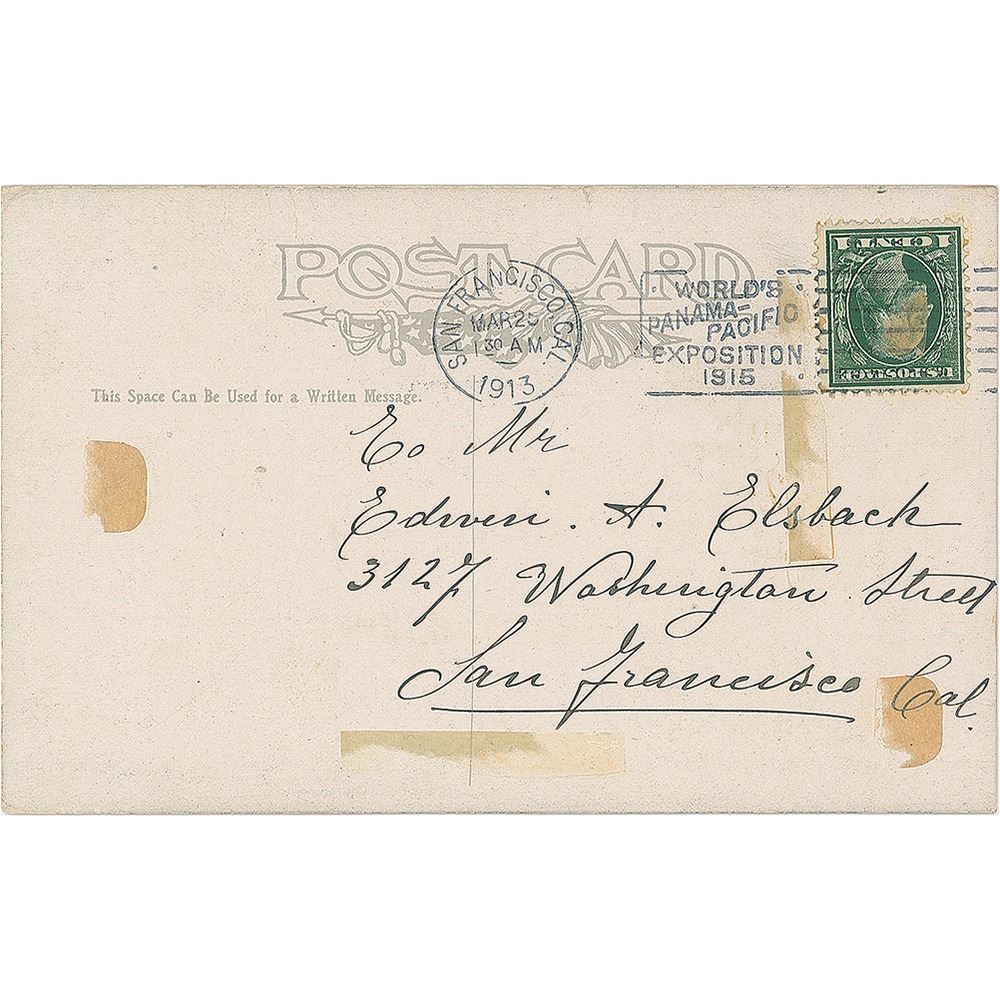 POST CARD
SAN FRANCISCO, CAL.
MAR 25
1 30 A M
1913
WORLD'S
PANAMA-
PACIFIC
EXPOSITION
1915
1 CENT 1
U.S. POSTAGE
This Space Can Be Used for a Written Message.
To Mr
Edwin. A. Elsbach
3127 Washington Street
San Francisco Cal.